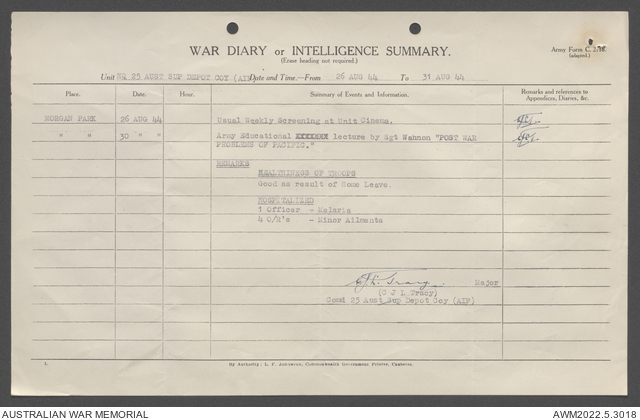 WAR DIARY or INTELLIGENCE SUMMARY.
(Erase heading not required.)
Army Form C. 2118.
(adapted.)
Unit HQ 25 AUST SUP DEPOT COY (AIF) Date and Time.—From 26 AUG 44 To 31 AUG 44
Place. Date. Hour. Summary of Events and Information. Remarks and references to
Appendices, Diaries, &c.
MORGAN PARK 26 AUG 44 Usual Weekly Screening at Unit Cinema.
" " 30 " " Army Educational XXXXXXX lecture by Sgt Wahnon "POST WAR
PROBLEMS OF PACIFIC."
REMARKS
HEALTHINESS OF TROOPS
Good as result of Home Leave.
HOSPITALIZED
1 Officer - Malaria
4 O/R's - Minor Ailments
Major
(C J L Tracy)
Comd 25 Aust Sup Depot Coy (AIF)
By Authority: L. F. Johnston, Commonwealth Government Printer, Canberra.
AUSTRALIAN WAR MEMORIAL
AWM2022.5.3018